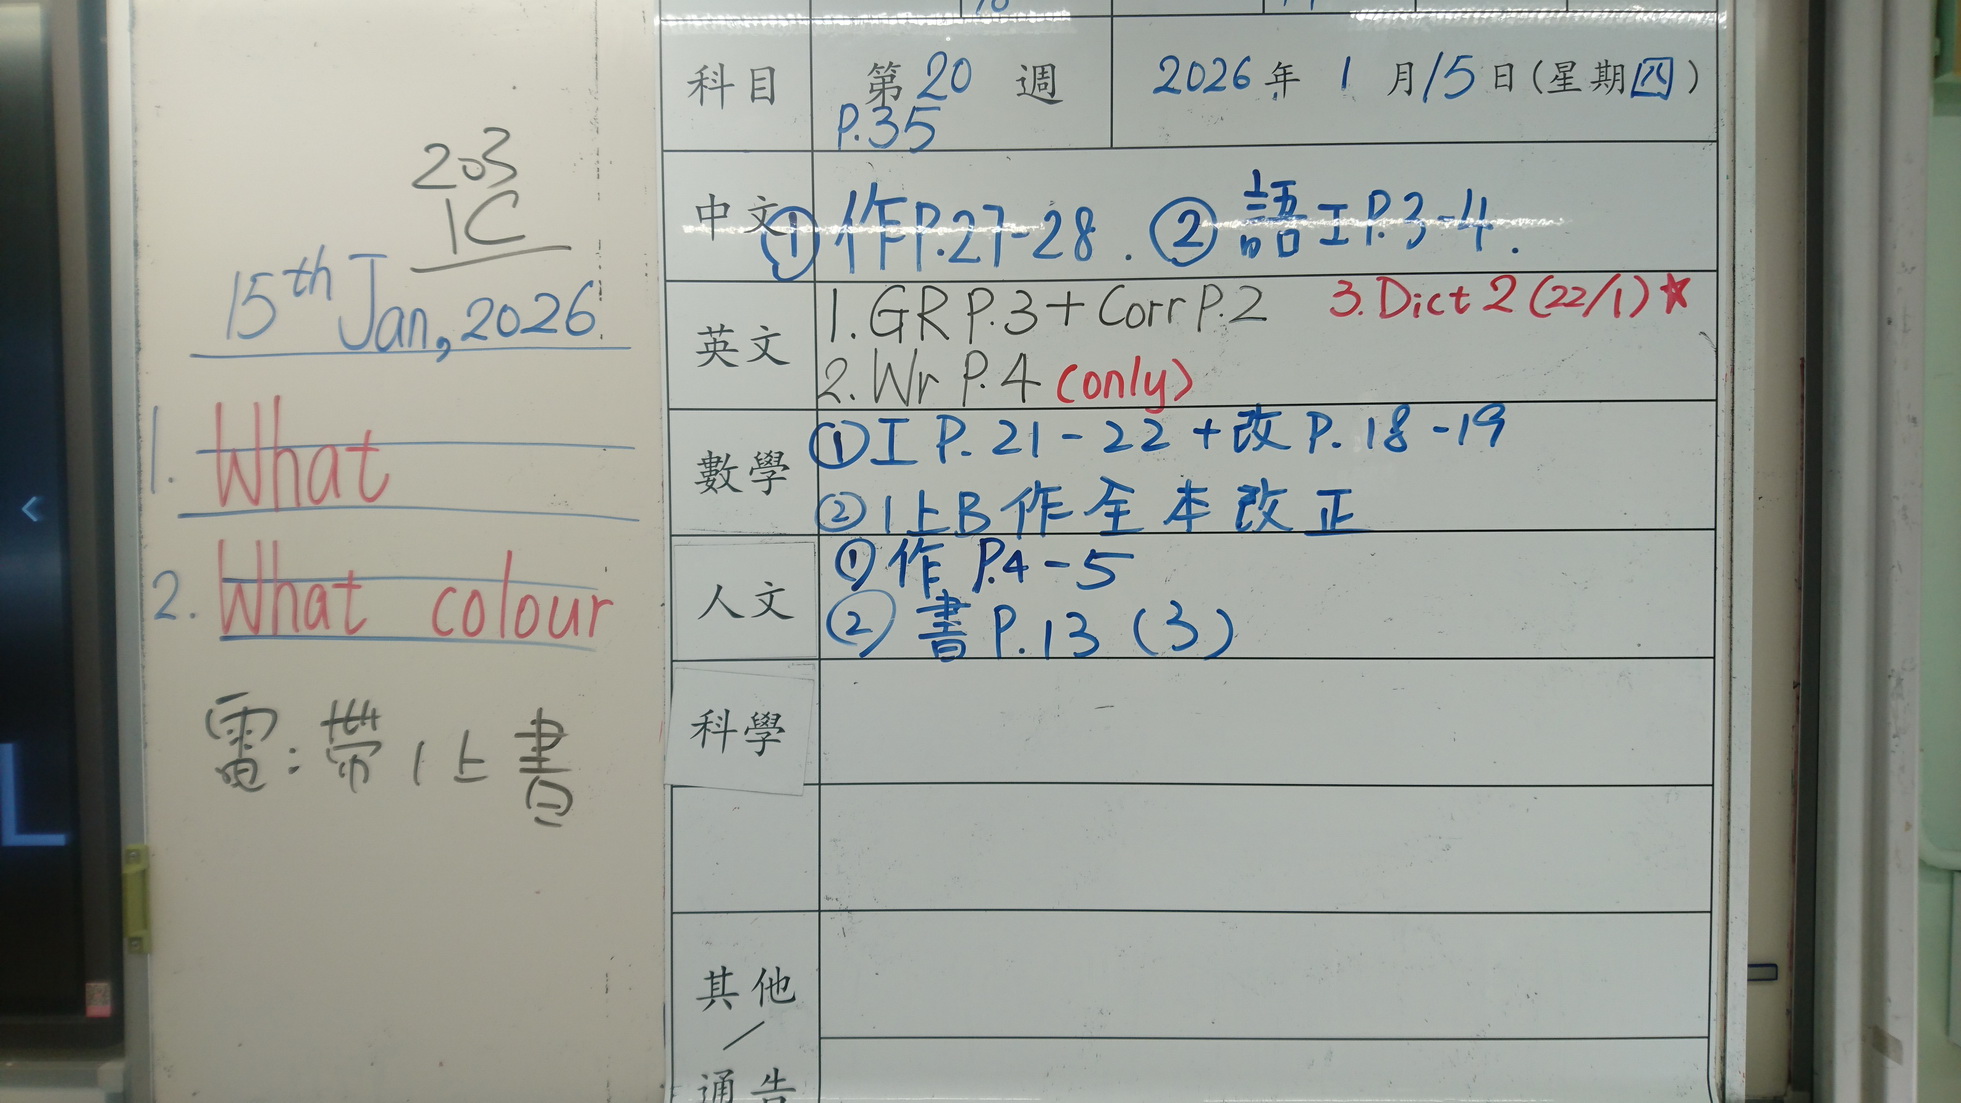 203
1C
15th Jan, 2026.
1. What
2. What colour
電:帶1上書
科目 第20週 2026年1月15日(星期四)
P.35
中文 ①作P.27-28. ②語工P.3-4.
英文 1. GR P.3+Corr P.2 3. Dict 2 (22/1)★
2. Wr P.4 (only)
數學 ①工P.21-22+改P.18-19
②1上B作全本改正
人文 ①作P.4-5
②書P.13(3)
科學
其他
/
通告